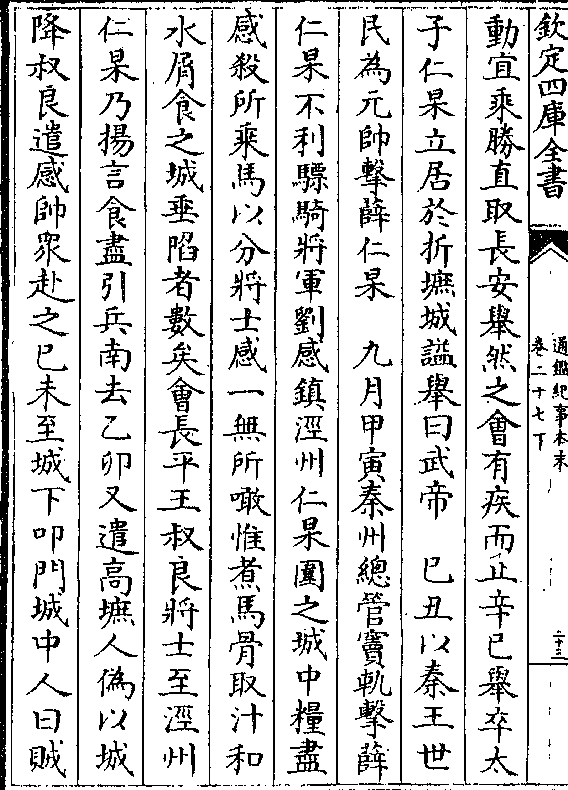 欽定四庫全書
通鑑紀事本末
卷二十七下
二十三
動宜乘勝直取長安舉然之會有疾而止辛巳舉卒太
子仁杲立居於折墌城謚舉曰武帝　己丑以秦王世
民為元帥擊薛仁杲　九月甲寅秦州總管竇軌擊薛
仁杲不利驃騎將軍劉感鎮涇州仁杲圍之城中糧盡
感殺所乘馬以分將士感一無所噉惟煮馬骨取汁和
水屑食之城垂陷者數矣會長平王叔良將士至涇州
仁杲乃揚言食盡引兵南去乙卯又遣高墌人偽以城
降叔良遣感帥衆赴之己未至城下叩門城中人曰賊